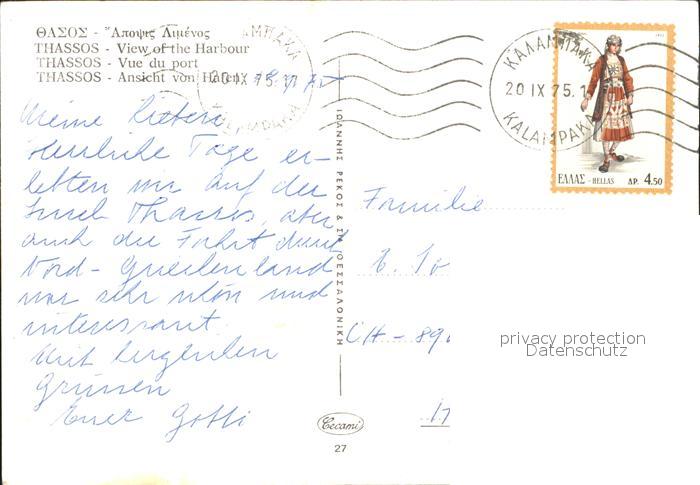 ΘΑΣΟΣ - Ἄποψις Λιμένος
THASSOS - View of the Harbour
THASSOS - Vue du port
THASSOS - Ansicht von Hafen
Meine Lieben
Herrliche Tage er-
lebten wir auf der
Insel Thassos, aber
auch die Fahrt durch
Nord-Griechenland
war sehr schön und
interessant.
Mit herzlichen
Grüssen
Euer Gotti
ΙΩΑΝΝΗΣ ΡΕΚΟΣ & ΣΙΑ ΘΕΣΣΑΛΟΝΙΚΗ
Cecami
27
ΚΑΛΑΜΠΑΚΑ
20 IX 75. 1
KALAMPAKA
ΜΠΑΚΑ
20 IX 75. 1
ΕΛΛΑΣ - HELLAS ΔΡ. 4.50
Familie
CH - 89
privacy protection
Datenschutz